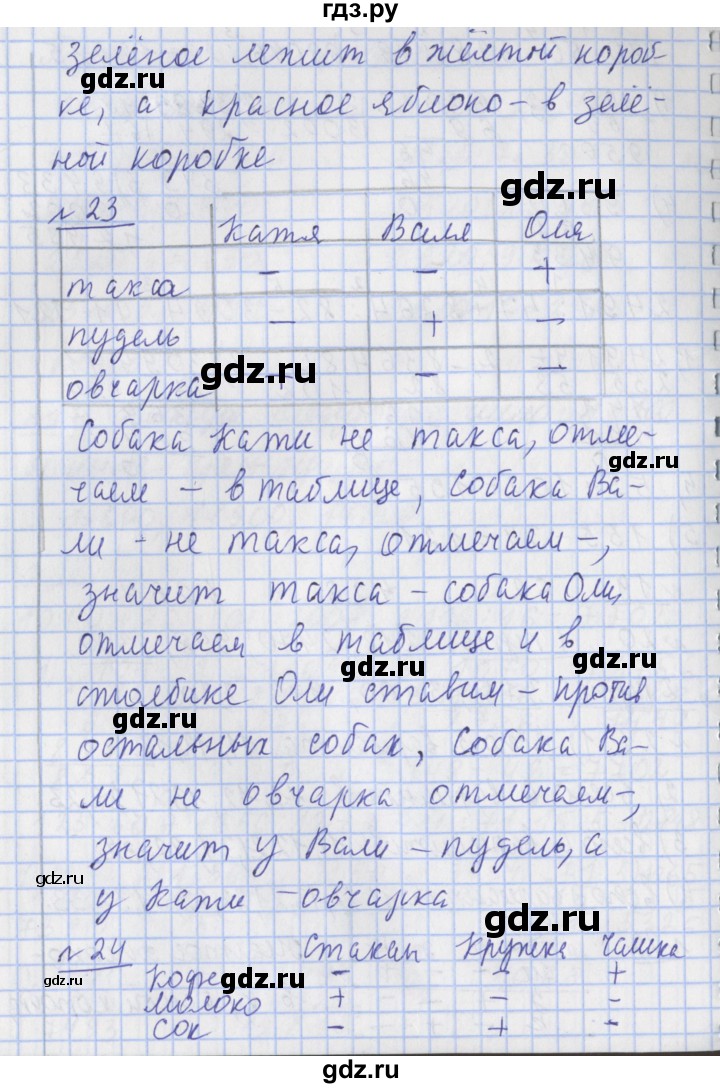 гдз.ру
зелёное лежит в жёлтой короб-
gdz.ru
ке, а красное яблоко - в зелё-
gdz.ru
ной коробке
gdz.ru
№ 23
Катя Валя Оля
такса - - +
пудель - + -
gdz.ru
овчарка + - -
Собака Кати не такса, отме-
gdz.ru
чаем - в таблице, Собака Ва-
gdz.ru
ли - не такса, отмечаем -,
gdz.ru
значит такса - собака Оли,
отмечаем в таблице и в
gdz.ru
столбике Оли ставим - против
gdz.ru
остальных собак, Собака Ва-
ли не овчарка отмечаем -,
gdz.ru
значит у Вали - пудель, а
gdz.ru
у Кати - овчарка
gdz.ru
№ 24 Стакан Кружка Чашка
gdz.ru
кофе - - +
молоко + - -
сок - + -
gdz.ru
gdz.ru